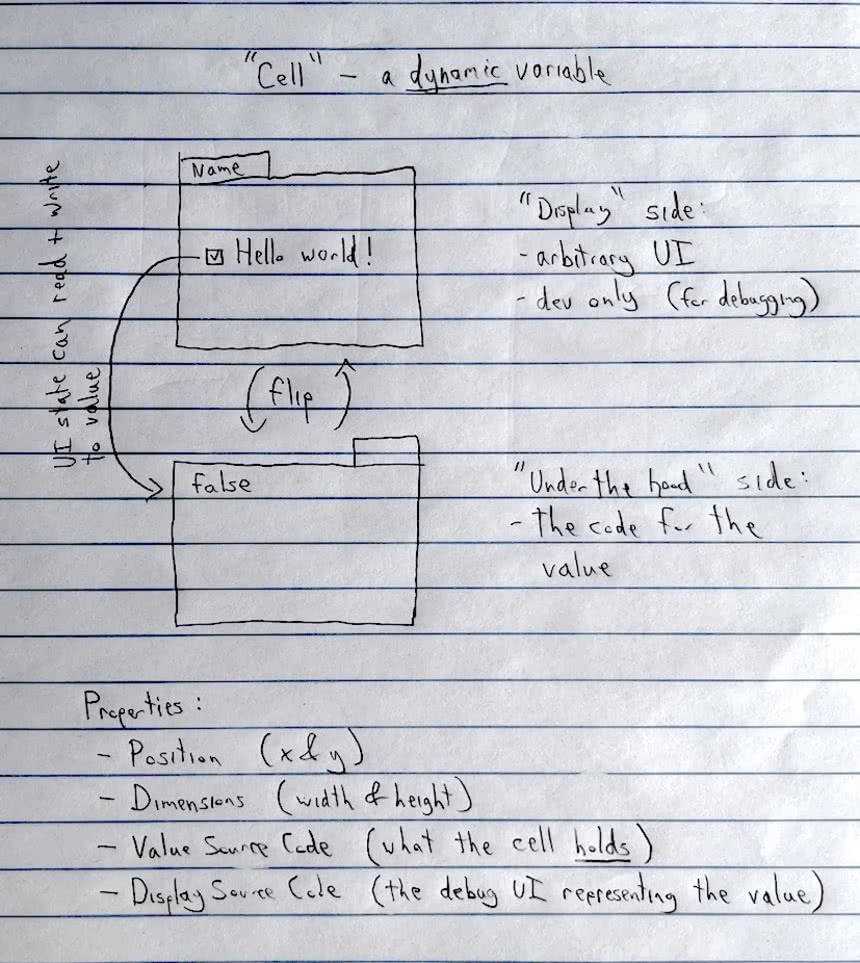 "Cell" - a dynamic variable
Name
Hello world!
"Display" side:
- arbitrary UI
- dev only (for debugging)
UI state can read + write
to value
flip
false
"Under the hood" side:
- the code for the
value
Properties:
- Position (x & y)
- Dimensions (width & height)
- Value Source Code (what the cell holds)
- Display Source Code (the debug UI representing the value)